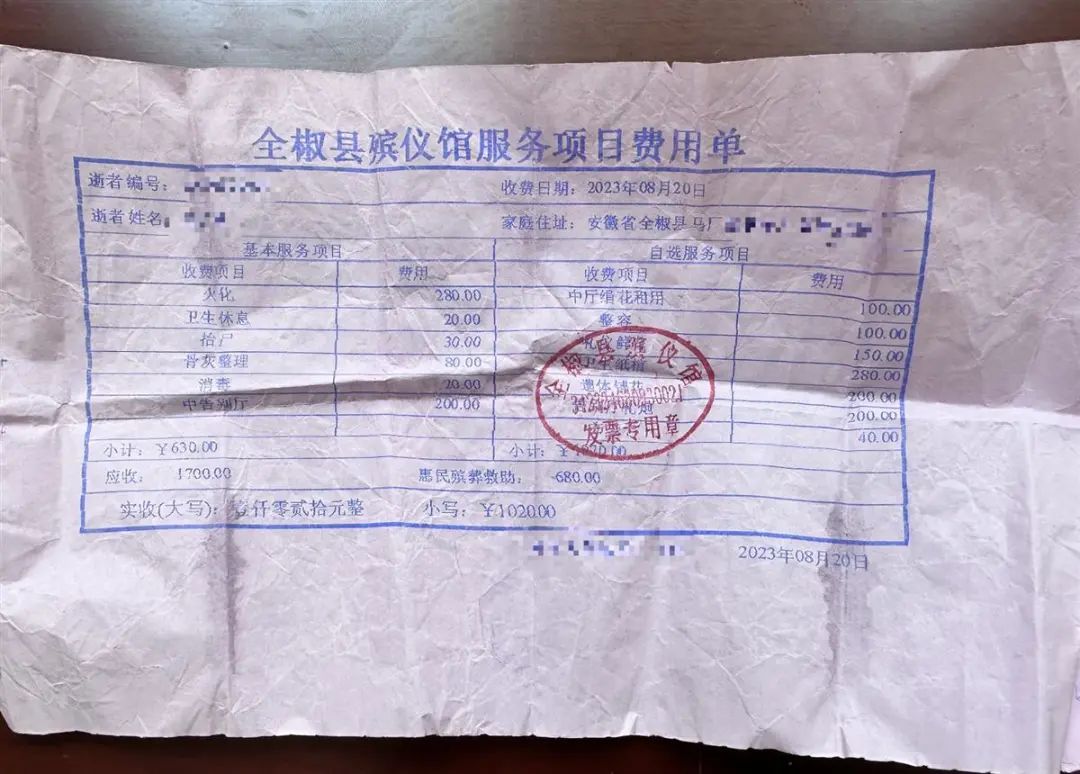 全椒县殡仪馆服务项目费用单
逝者编号：
收费日期：2023年08月20日
逝者姓名
家庭住址：安徽省全椒县马厂
基本服务项目 自选服务项目
收费项目 费用 收费项目 费用
火化 280.00 中厅绢花租用 100.00
卫生休息 20.00 整容 100.00
抬尸 30.00 150.00
骨灰整理 80.00 卫生纸棺 280.00
消毒 20.00 遗体铺花 200.00
中告别厅 200.00 200.00
40.00
小计：￥630.00 小计：
应收：1700.00 惠民殡葬救助：-680.00
实收(大写)：壹仟零贰拾元整 小写：￥1020.00
2023年08月20日
全椒县殡仪馆
发票专用章